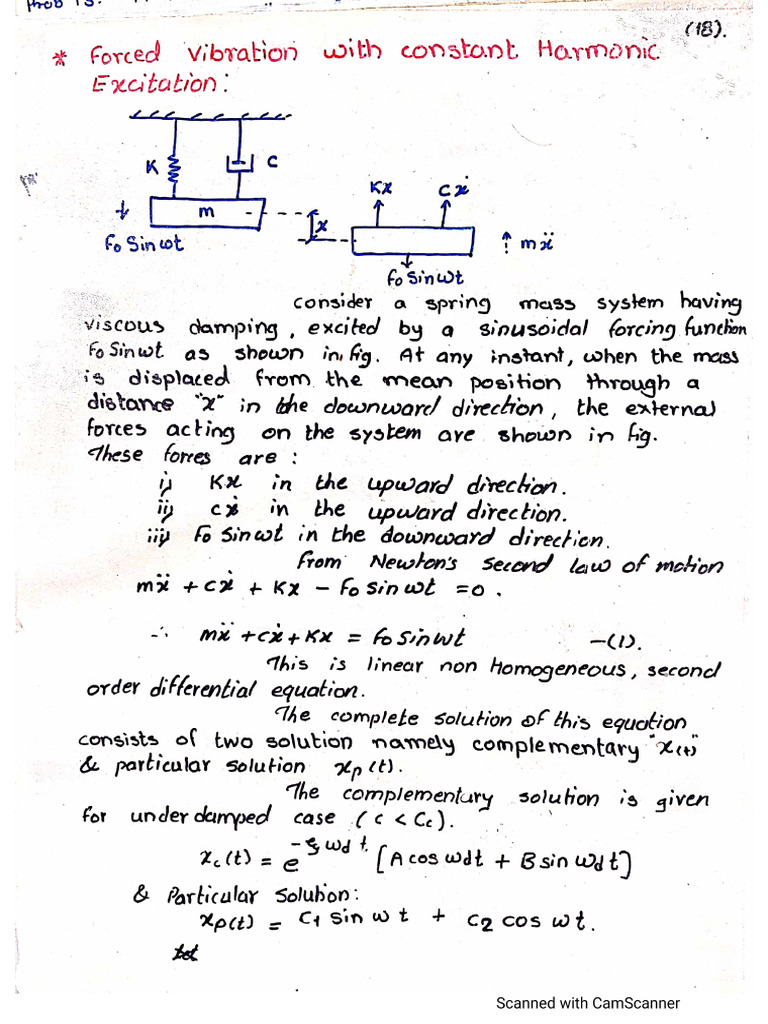 Prob 13.
(18).
* Forced Vibration with constant Harmonic
Excitation:
K
C
m
x
Fo Sin ωt
Kx
Cẋ
mẍ
Fo Sin ωt
consider a spring mass system having
viscous damping, excited by a sinusoidal forcing function
Fo Sin ωt as shown in fig. At any instant, when the mass
is displaced from the mean position through a
distance "x" in the downward direction, the external
forces acting on the system are shown in fig.
These forces are :
i) Kx in the upward direction.
ii) cẋ in the upward direction.
iii) Fo Sin ωt in the downward direction.
From Newton's second law of motion
mẍ + cẋ + Kx - Fo sin ωt = 0 .
∴ mẍ + cẋ + Kx = Fo Sin ωt -(1).
This is linear non Homogeneous, second
order differential equation.
The complete solution of this equation
consists of two solution namely complementary "x(t)"
& particular solution xp(t).
The complementary solution is given
for underdamped case ( c < Cc).
xc(t) = e^-ξωd t. [A cos ωdt + B sin ωd t]
& Particular Solution:
xp(t) = C1 sin ω t + C2 cos ω t.
Scanned with CamScanner